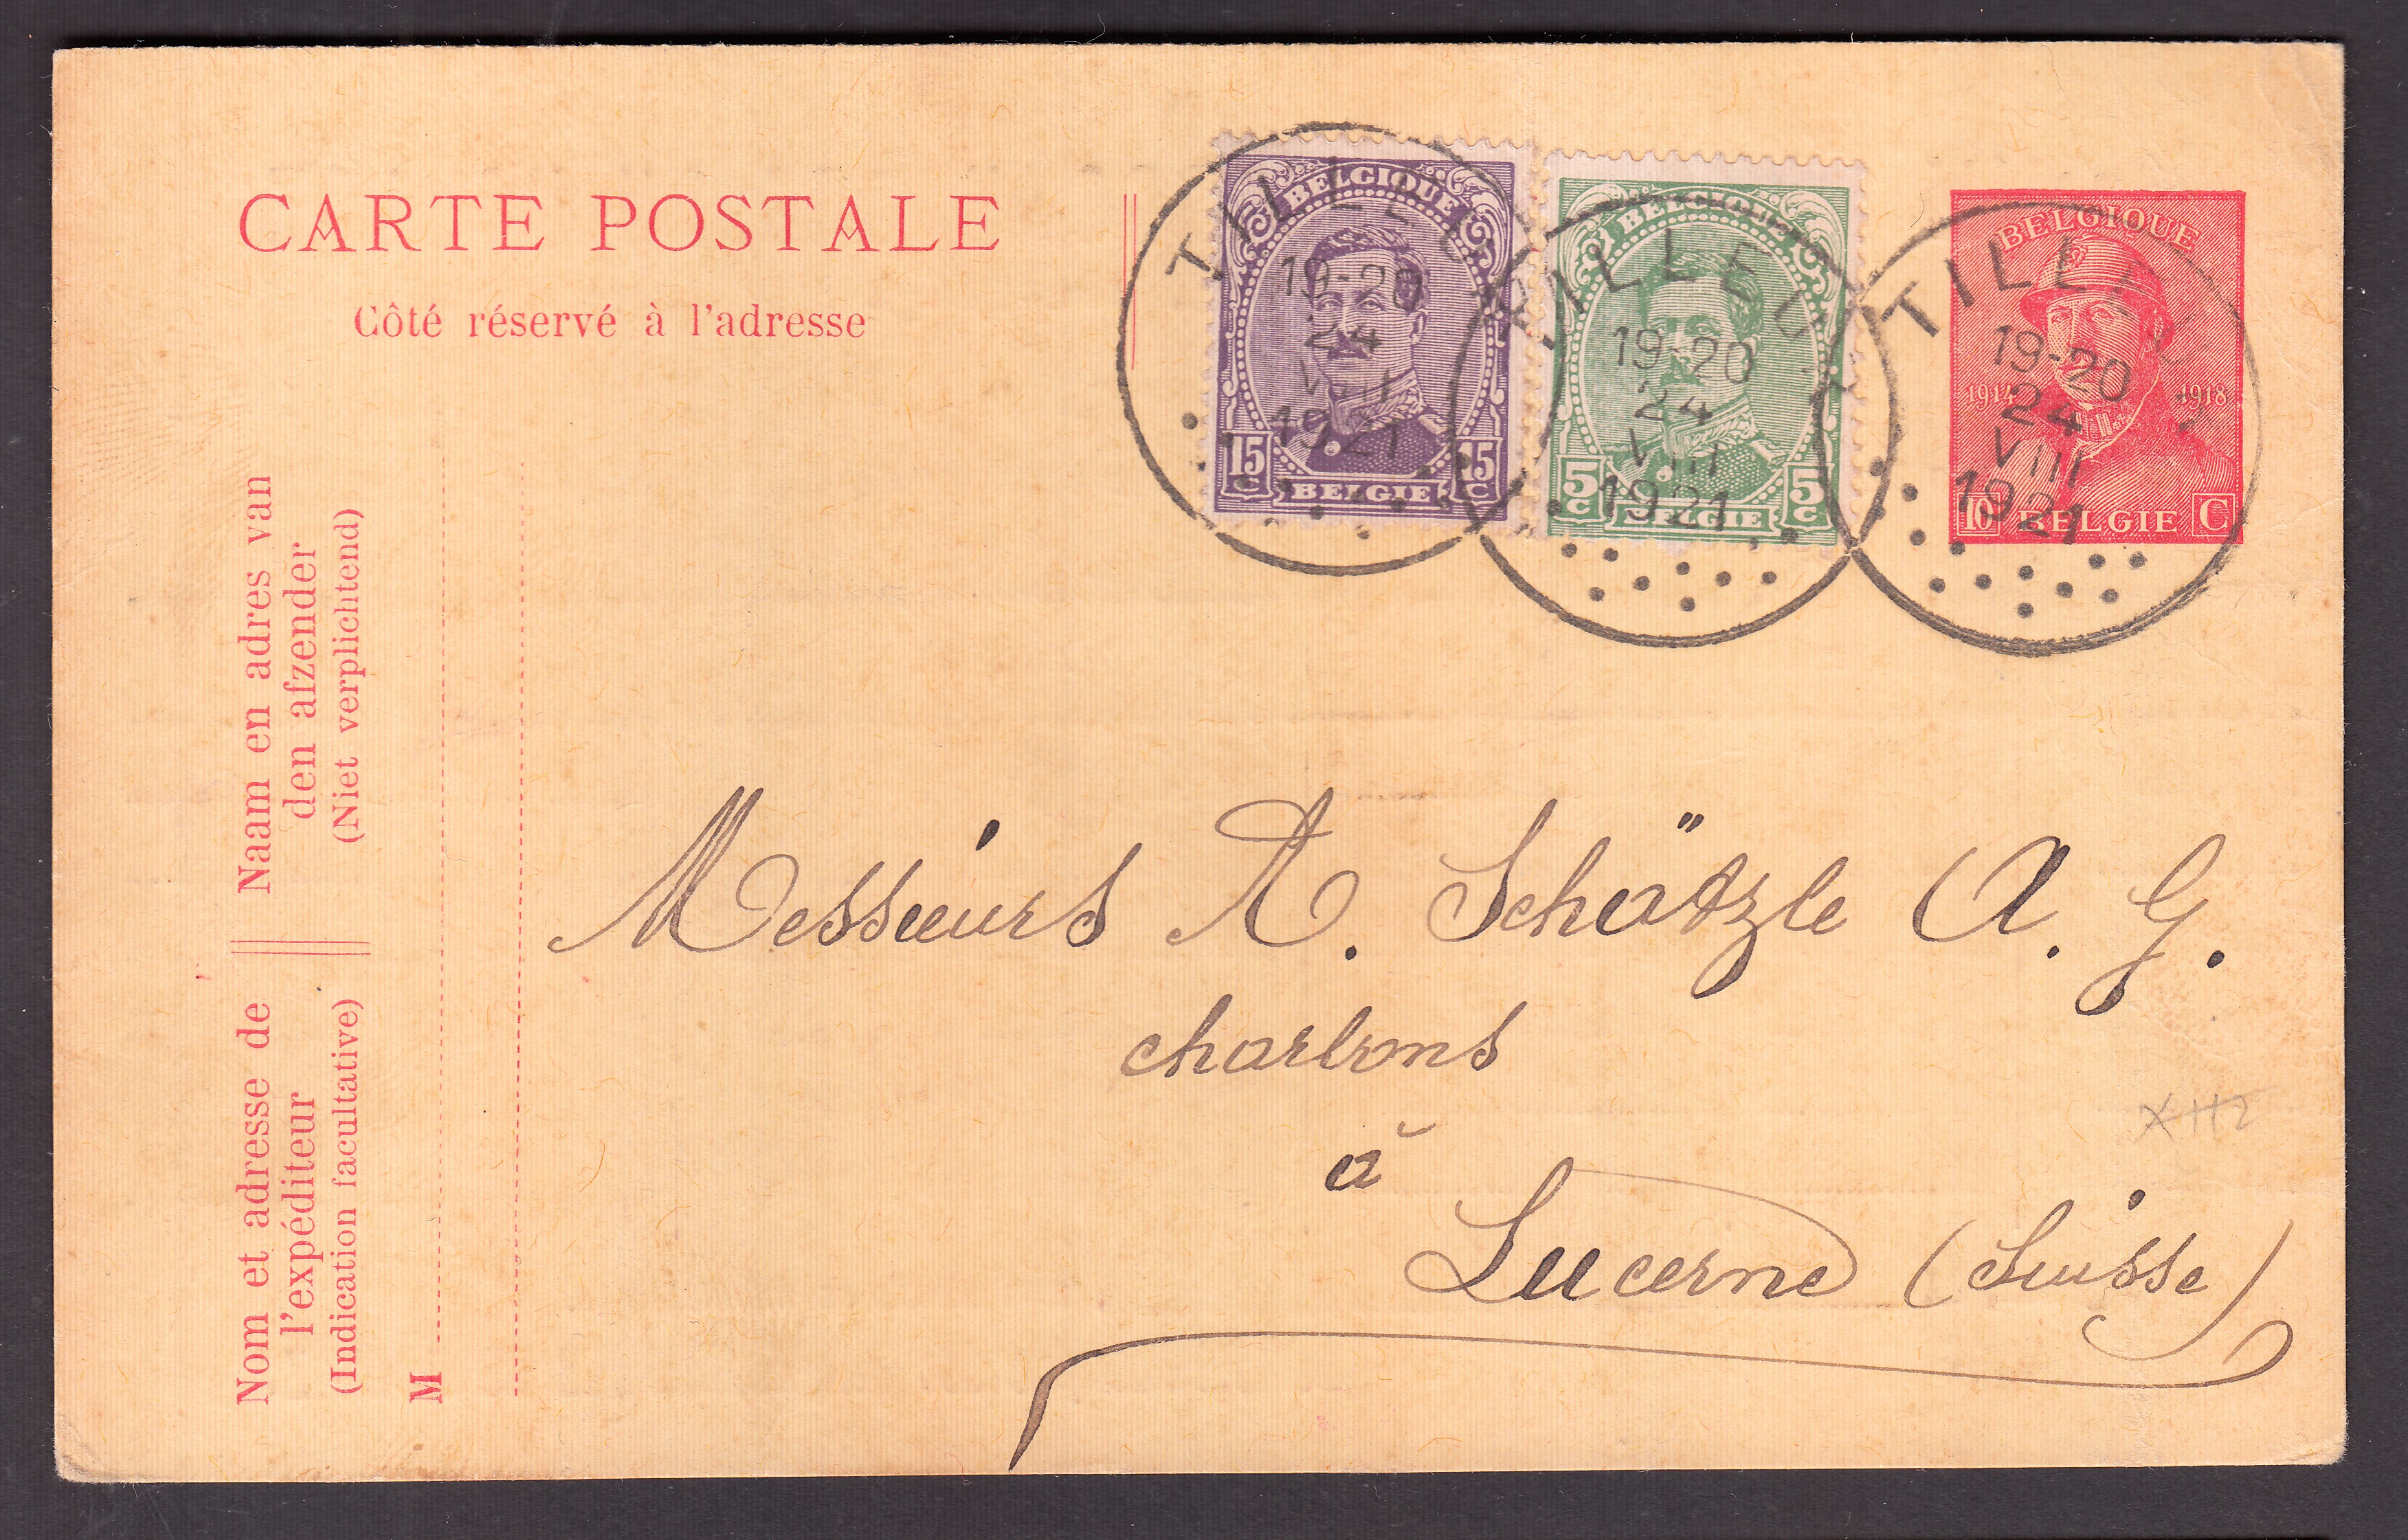 CARTE POSTALE
Côté réservé à l'adresse
BELGIQUE
15 C BELGIE 15 C
BELGIQUE
5 C BELGIE 5 C
BELGIQUE
1914 1918
10 BELGIE C
TILLEUR
19-20
24
VIII
1921
TILLEUR
19-20
24
VIII
1921
TILLEUR
19-20
24
VIII
1921
Naam en adres van
den afzender
(Niet verplichtend)
Nom et adresse de
l'expéditeur
(Indication facultative)
M
Messieurs A. Schätzle A. G.
charbons
à
Lucerne (Suisse)